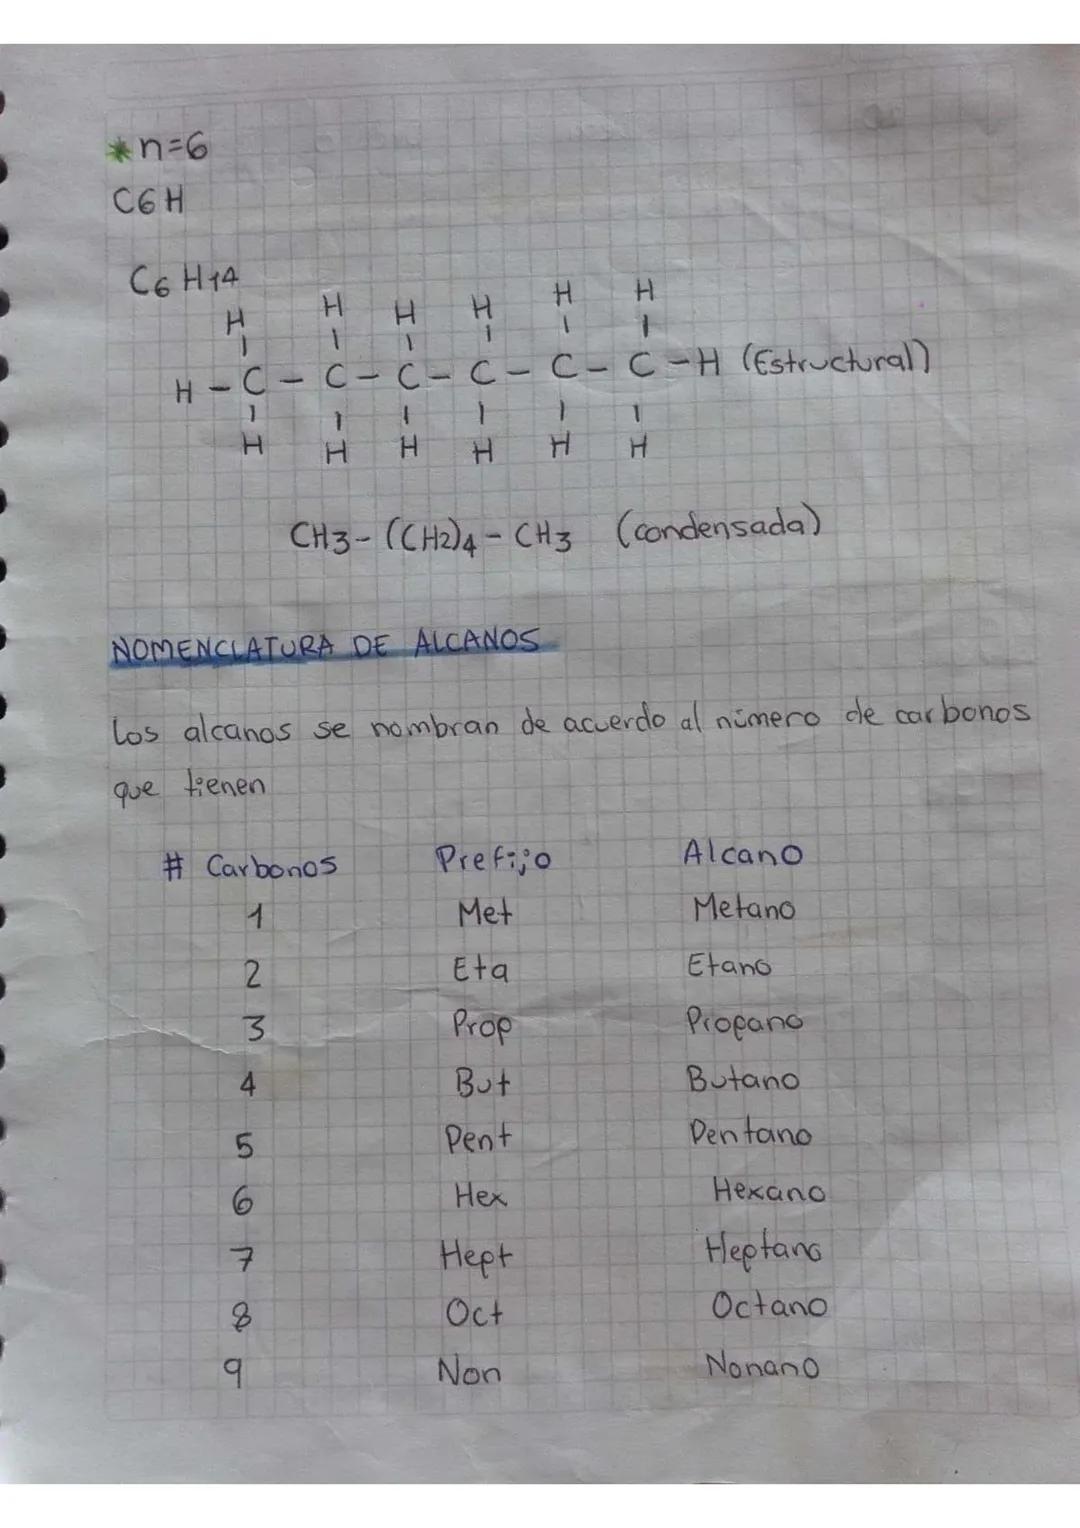 * n=6
C6H
C6H14
H H H H H H
H - C - C - C - C - C - C - H (Estructural)
H H H H H H
CH3 - (CH2)4 - CH3 (condensada)
NOMENCLATURA DE ALCANOS
Los alcanos se nombran de acuerdo al número de carbonos
que tienen
# Carbonos Prefijo Alcano
1 Met Metano
2 Eta Etano
3 Prop Propano
4 But Butano
5 Pent Pentano
6 Hex Hexano
7 Hept Heptano
8 Oct Octano
9 Non Nonano